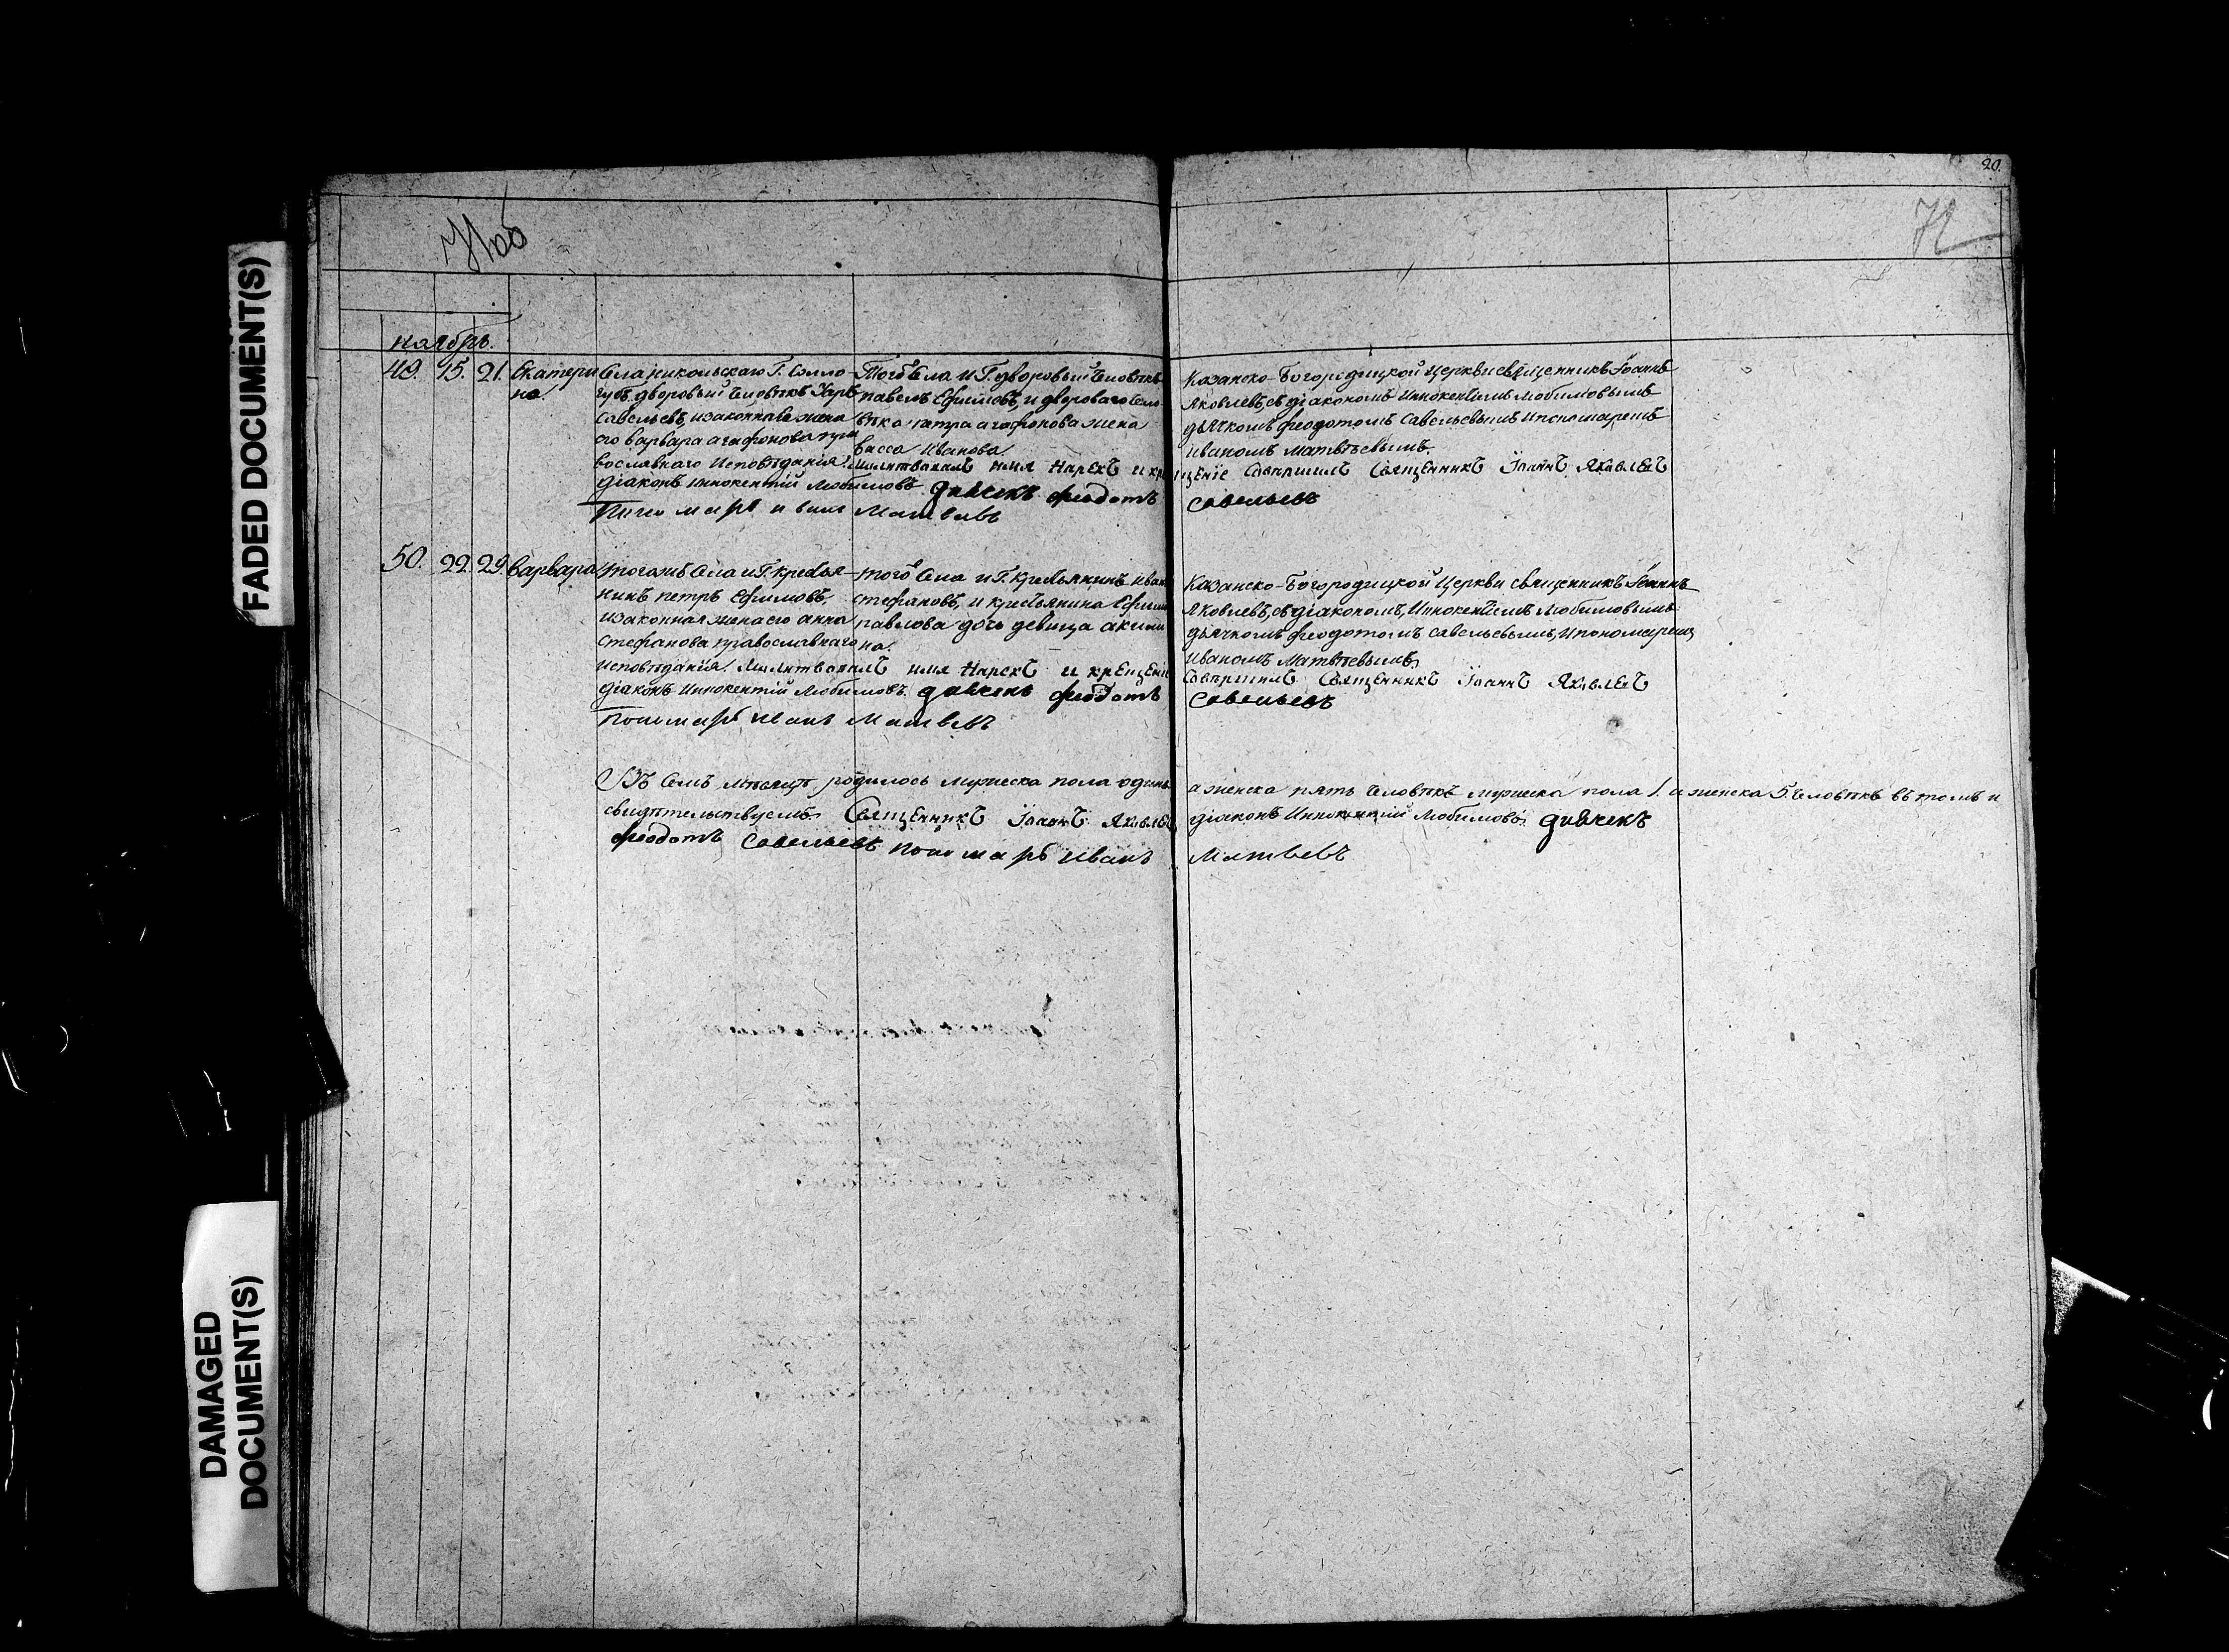 20.
72
Нояб
ноябрь.
49. 15. 21. Екатери
на
Села Никольскаго Г. Солло-
губъ дворовый человѣкъ Карпъ
Савельевъ, изаконная жена
его варвара агафонова пра
вославнаго Исповѣданія.
Того Села и Г. дворовый человѣкъ
павелъ Ефимовъ, и двороваго чело-
вѣка петра агафонова жена
васса Иванова.
Казанско-Богородицкой Церкви священникъ Іоаннъ
Яковлевъ, съ діакономъ Иннокентіемъ Любимовымъ
дьячкомъ феодотомъ Савельевымъ ипономаремъ
иваномъ Матвѣевымъ.
Молитвовалъ имя Нарекъ и крещеніе Совершилъ Священникъ Іоаннъ Яковлевъ
діаконъ Иннокентій Любимовъ дьячекъ феодотъ Савельевъ
Пономарь иванъ Матвевъ
50. 22. 29. варвара
тогожъ Села иГ. кресья-
нинъ петръ Ефимовъ,
изаконная жена его анна
Стефанова православнаго
исповѣданія
того Села иГ. Кресьянинъ иванъ
стефановъ, и кресьянина Ефима
павлова дочь девица акили
на.
Казанско-Богородицкой Церкви священникъ Іоаннъ
Яковлевъ, съ діакономъ, Иннокентіемъ Любимовымъ
дьячкомъ феодотомъ савельевымъ, ипономаремъ
Иваномъ Матвѣевымъ
Молитвовалъ имя Нарекъ и крещеніе Совершилъ Священникъ Іоаннъ Яковлевъ
діаконъ Иннокентій Любимовъ дьячекъ феодотъ Савельевъ
Пономарь иванъ Матвевъ
Въ Семъ Мѣсяцѣ родилось мужеска пола одинъ а женска пять человѣкъ мужеска пола 1. и женска 5. человѣкъ въ томъ и
свидѣтельствуемъ Священникъ Іоаннъ Яковлевъ діаконъ Иннокентій Любимовъ дьячекъ
феодотъ Савельевъ Пономарь Иванъ Матвевъ
FADED DOCUMENT(S)
DAMAGED
DOCUMENT(S)